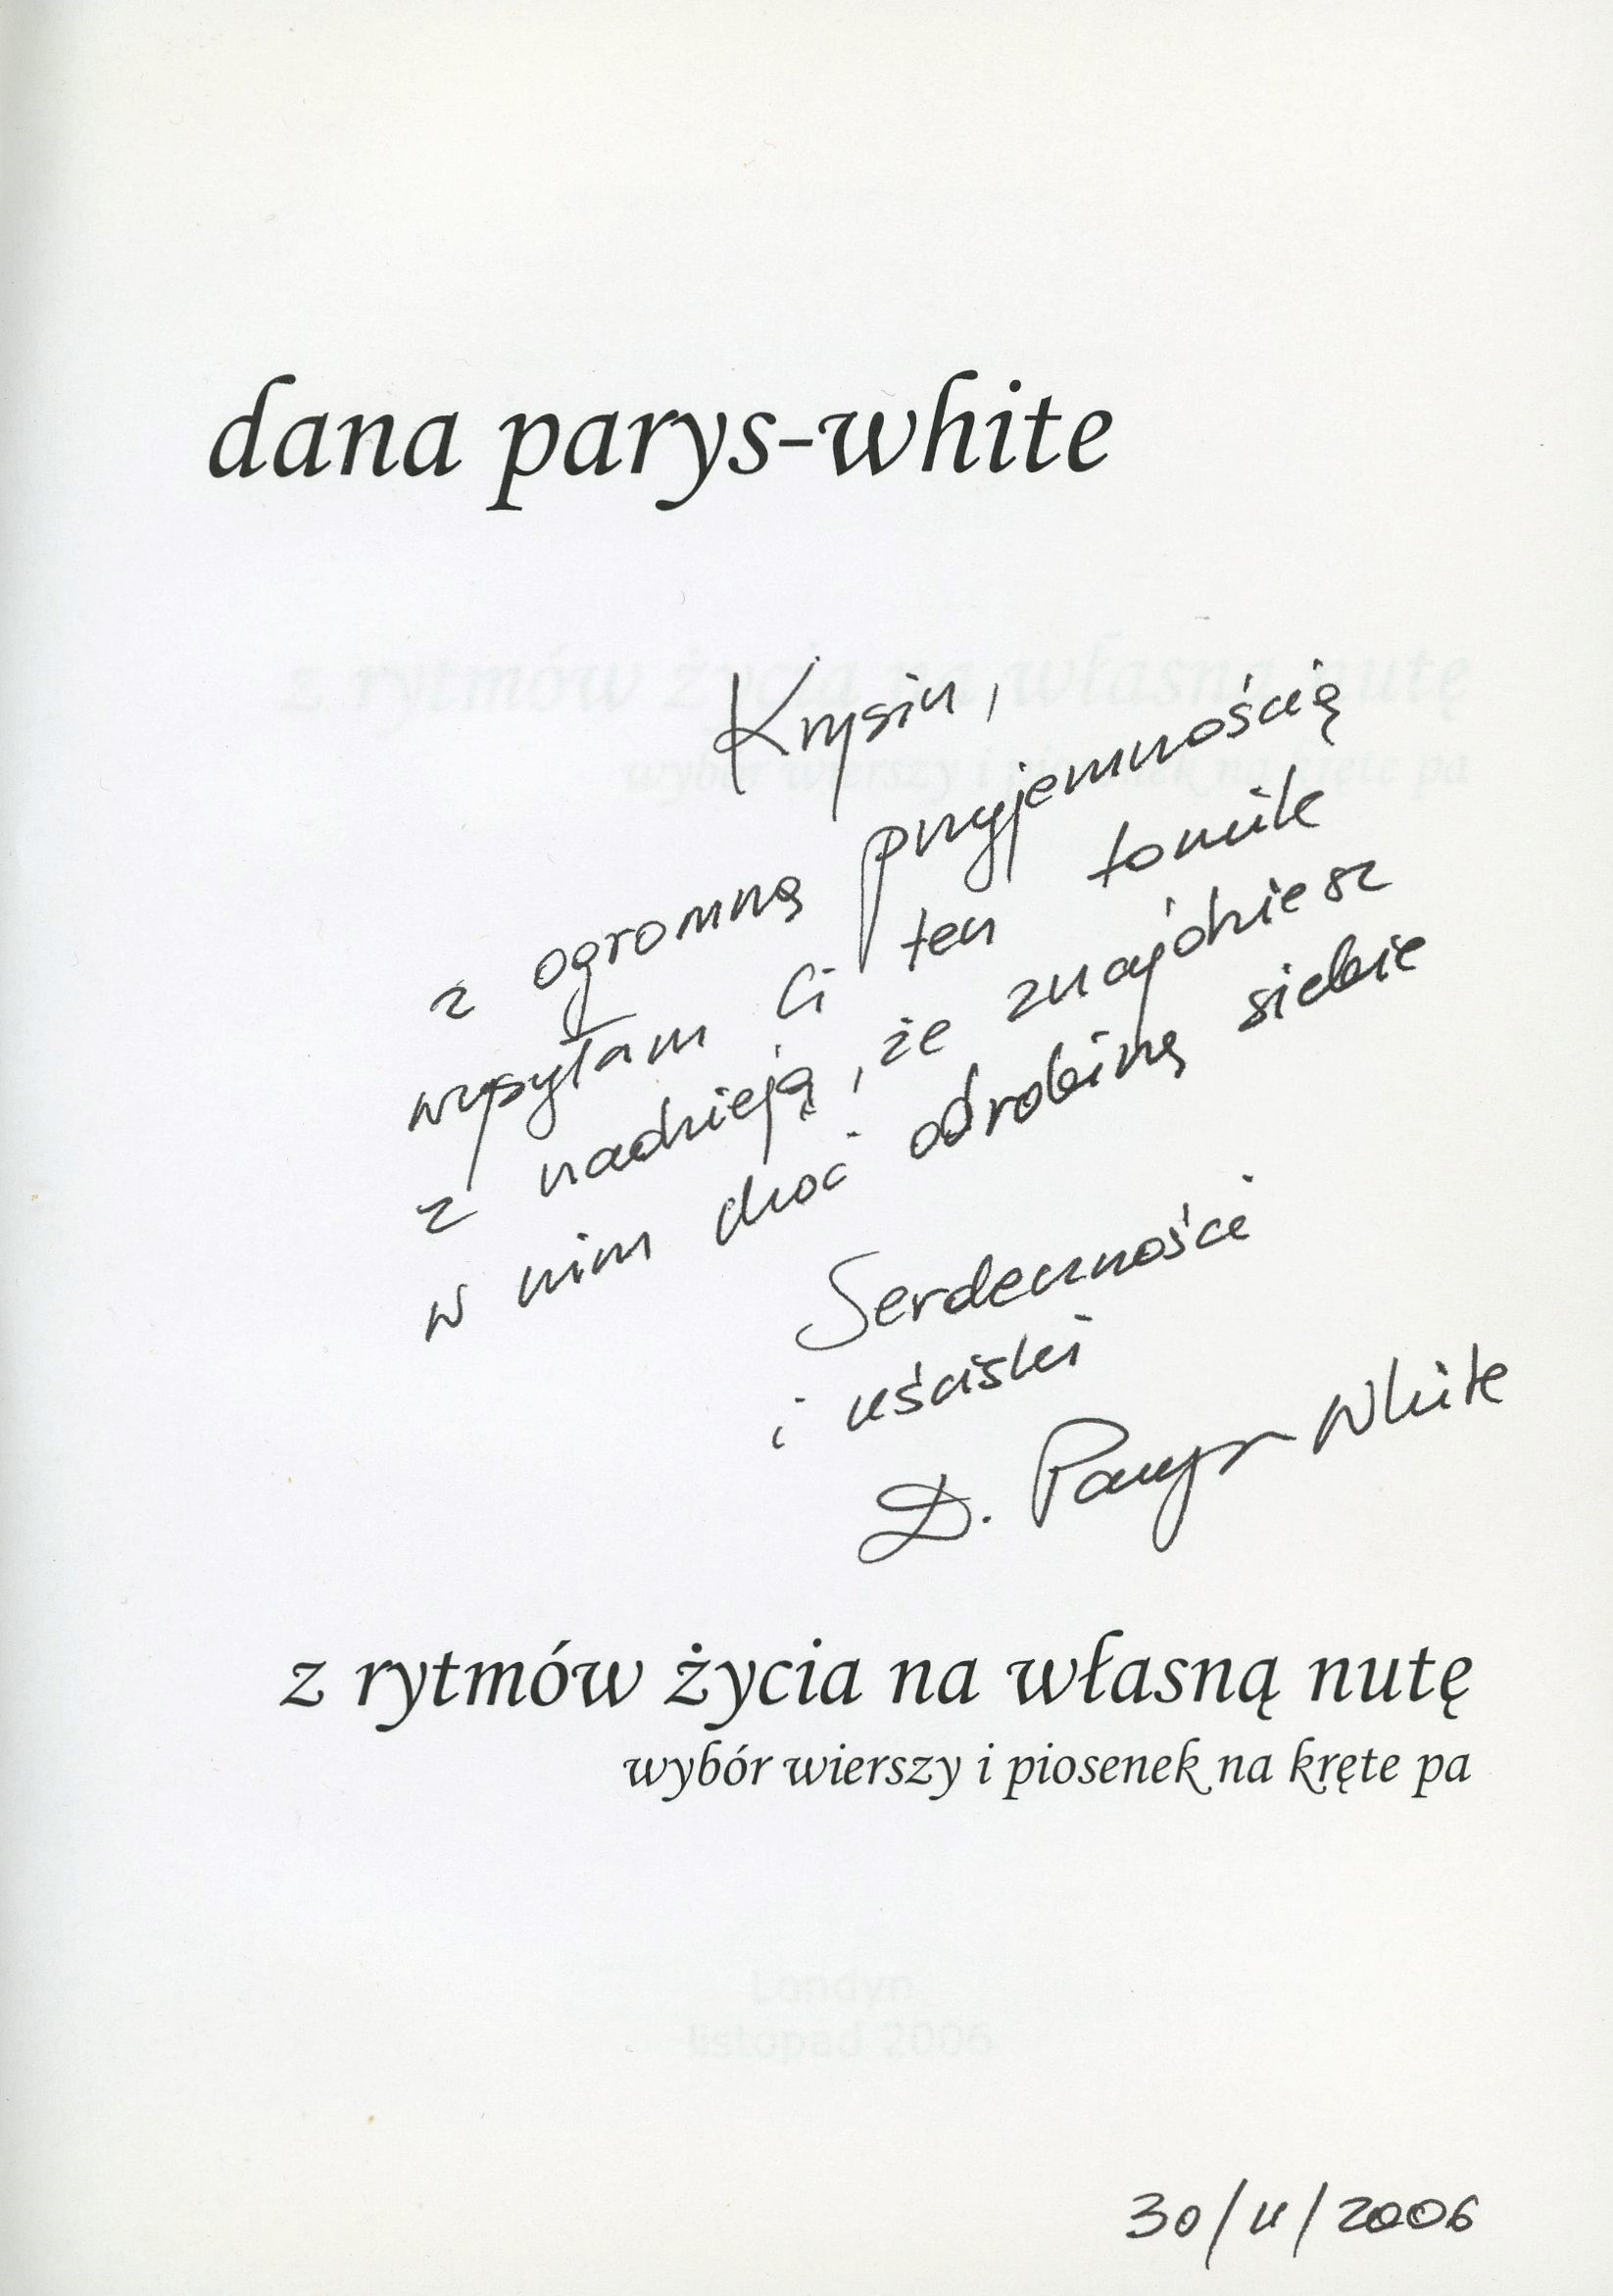 dana parys-white
Krysiu,
z ogromną przyjemnością
wysyłam Ci ten tomik
z nadzieją, że znajdziesz
w nim choć odrobinę siebie
Serdeczności
i uściski
D. Parys-White
z rytmów życia na własną nutę
wybór wierszy i piosenek na kręte pa
Londyn
listopad 2006
30/11/2006